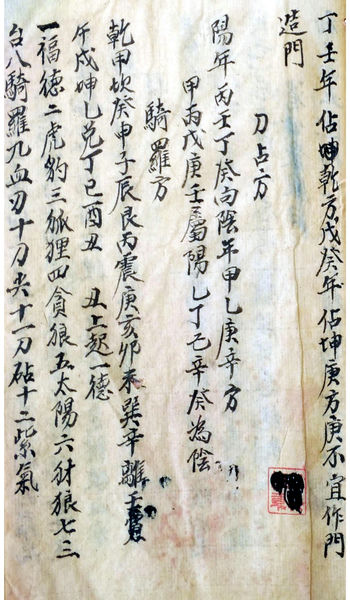 丁壬年佔坤乾方戊癸年佔坤庚方庚不宜作門
造門
刀占方
陽年丙壬丁癸向陰年甲乙庚辛方
甲丙戊庚壬屬陽乙丁己辛癸為陰
騎羅方
乾甲坎癸申子辰艮丙震庚亥卯未巽辛離壬寅
午戌坤乙兌丁巳酉丑 丑上起一德
一福德二虎豹三狐狸四貪狼五太陽六財狼七三
台八騎羅九血刃十刀尖十一刀砧十二紫氣